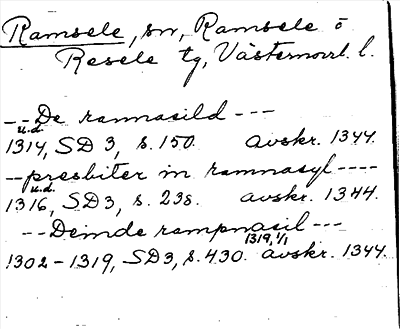 Ramsele, sn, Ramsele o
Resele tg, Västernorrl. l.
-- De ramnasild ---
u.d.
1314, SD 3, s. 150. avskr. 1344.
-- presbiter in ramnasyl ----
u.d.
1316, SD 3, s. 238. avskr. 1344.
-- Deinde rampnasil ---
1319, 1/1
1302-1319, SD 3, s. 430. avskr. 1344.